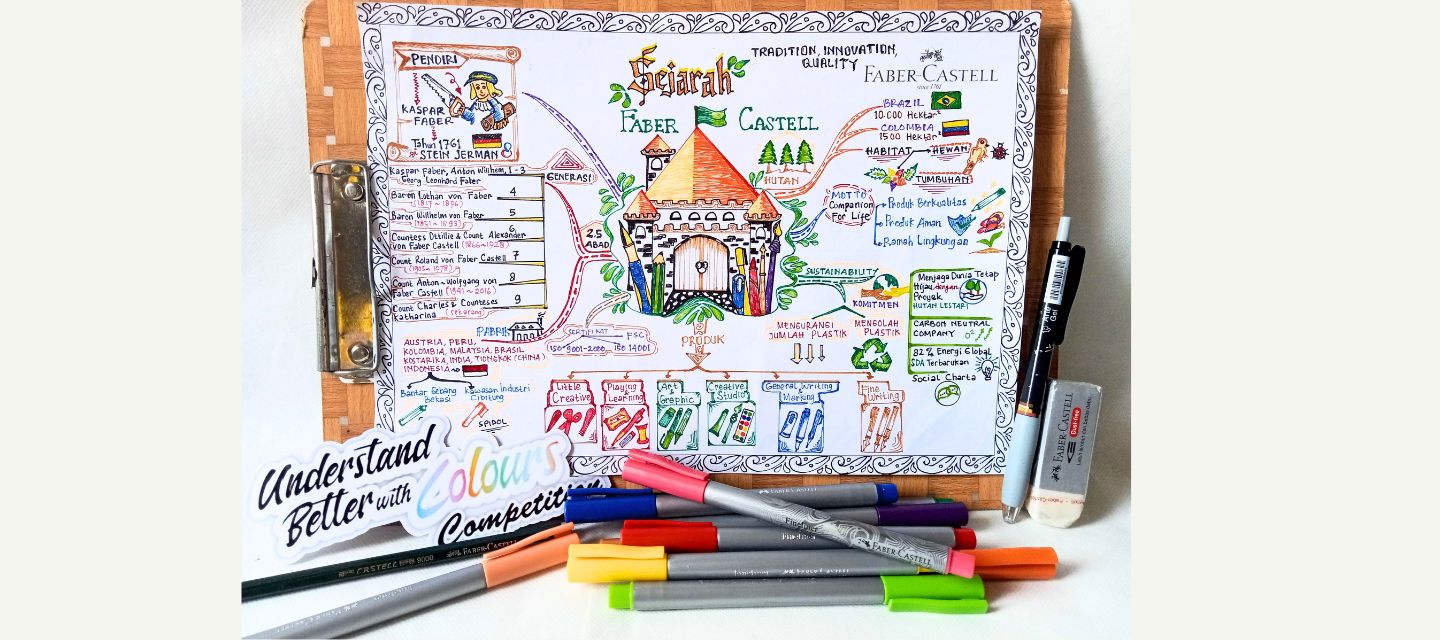 TRADITION, INNOVATION,
QUALITY
Sejarah
FABER CASTELL
FABER-CASTELL
since 1761
PENDIRI
KASPAR
FABER
Tahun 1761
STEIN JERMAN
GENERASI
Kaspar Faber, Anton Wilhem, 1-3
Georg Leonhard Faber
Baron Lothar von Faber 4
(1817~1896)
Baron Willhelm von Faber 5
(1851~1893)
Countess Ottillie & Count Alexander 6
von Faber Castell (1866~1928)
Count Roland von Faber Castell 7
Count Anton~Wolfgang von 8
Faber Castell (1941~2016)
Count Charles & Counteses 9
Katharina (sekarang)
2.5
ABAD
PABRIK
AUSTRIA, PERU,
KOLOMBIA, MALAYSIA, BRASIL
KOSTARIKA, INDIA, TIONGKOK (CHINA)
INDONESIA
Bantar Gebang
Bekasi
Kawasan industri
Cibitung
SPIDOL
SERTIFIKAT FSC
ISO-9001-2000 ISO 14001
HUTAN
BRAZIL
10.000 Hektar²
COLOMBIA
1500 Hektar²
HABITAT HEWAN
TUMBUHAN
"MOTTO"
Companion
For Life
Produk Berkualitas
Produk Aman
Ramah Lingkungan
SUSTAINABILITY
KOMITMEN
MENGURANGI
JUMLAH PLASTIK
MENGOLAH
PLASTIK
Menjaga Dunia Tetap
Hijau dengan
Proyek
HUTAN LESTARI
CARBON NEUTRAL
COMPANY
82% Energi Global
SDA Terbarukan
Social Charta
PRODUK
Little
Creative
Playing
Learning
Art
Graphic
Creative
Studio
General Writing
Marking
Fine
Writing
Understand
Better with Colours
Competition
CASTELL 9000 FABER-CASTELL
FABER-CASTELL
Finepen
FABER-CASTELL
Gel
FABER-CASTELL
Dust-free